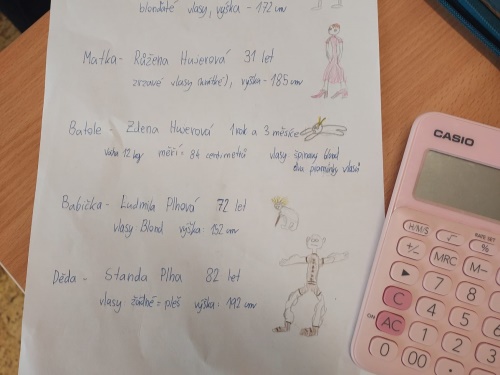 blonďaté vlasy, výška - 172 cm
Matka - Růžena Huverová 31 let
zrzavé vlasy (krátké), výška - 185 cm
Batole - Zdena Huverová 1 rok a 3 měsíce
váha 12 kg měří = 84 centimetrů vlasy špinavý blond
dva pramínky vlasů
Babička - Ludmila Plhová 72 let
vlasy Blond výška: 152 cm
Děda - Standa Plha 82 let
vlasy žádné = pleš výška: 192 cm
CASIO
H/M/S √
RATE SET
%
+/− MRC M−
▶ 7 8
C 4 5
ON AC 1 2
0 00 .